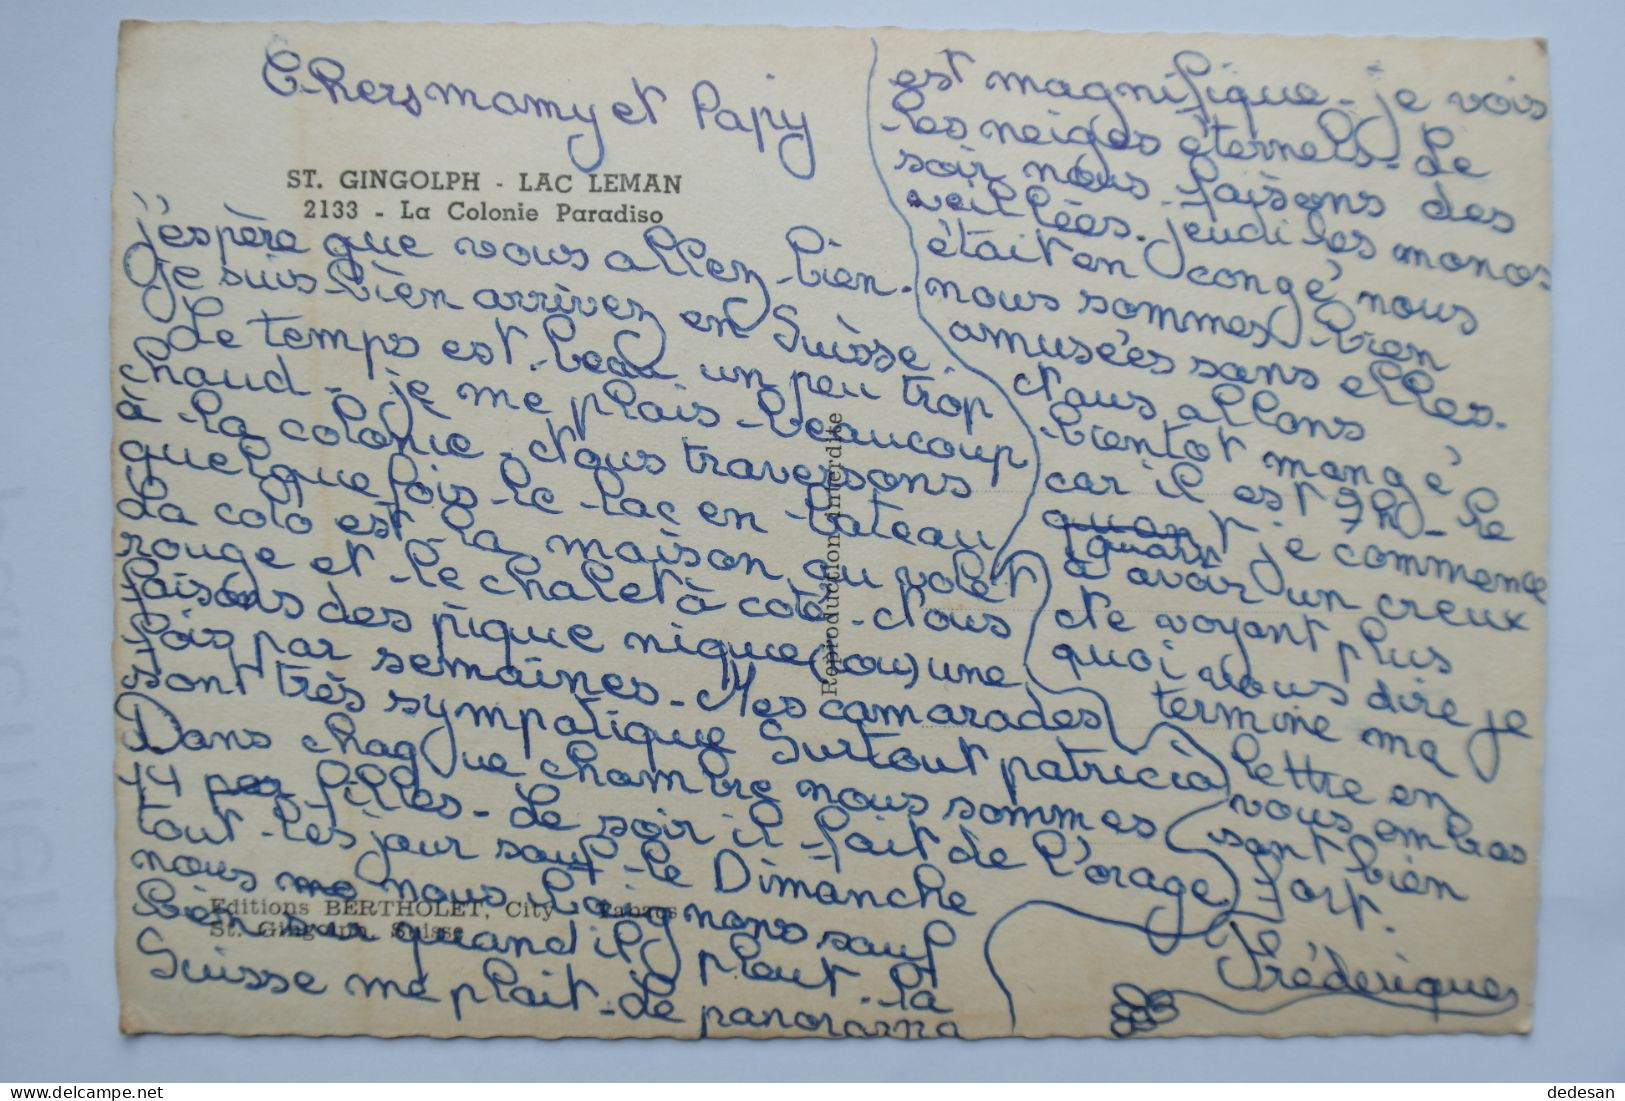 Chers mamy et Papy
ST. GINGOLPH - LAC LEMAN
2133 - La Colonie Paradiso
j'espère que vous allez bien.
je suis bien arrivez en Suisse.
Le temps est beau un peu trop
chaud - je me plais beaucoup
à la colonie - Nous traversons
quelque fois le lac en bateau
La colo est la maison au volet
rouge et le chalet à coté - Nous
faisons des pique nique (ou) une
fois par semaines - Mes camarades
sont très sympatique Surtout patricia
Dans chaque chambre nous sommes
44 par filles - Le soir il fait de l'orage
tout les jour sauf le Dimanche
nous nous baignons sauf
bien sur quand il pleut. la
Suisse me plait - Le panorama
Editions BERTHOLET, City Tabacs
St. Gingolph, Suisse
Reproduction interdite
est magnifique - je vois
les neiges éternels - Le
soir nous faisons des
veillées. jeudi les monos
était en congé nous
nous sommes bien
amusées sans elles.
Nous allons
bientot mangé
car il est 7h - le
quart je commence
à avoir un creux
Ne voyant plus
quoi vous dire je
termine ma
lettre en
vous embras
sant bien
fort.
Fréderique
dedesan